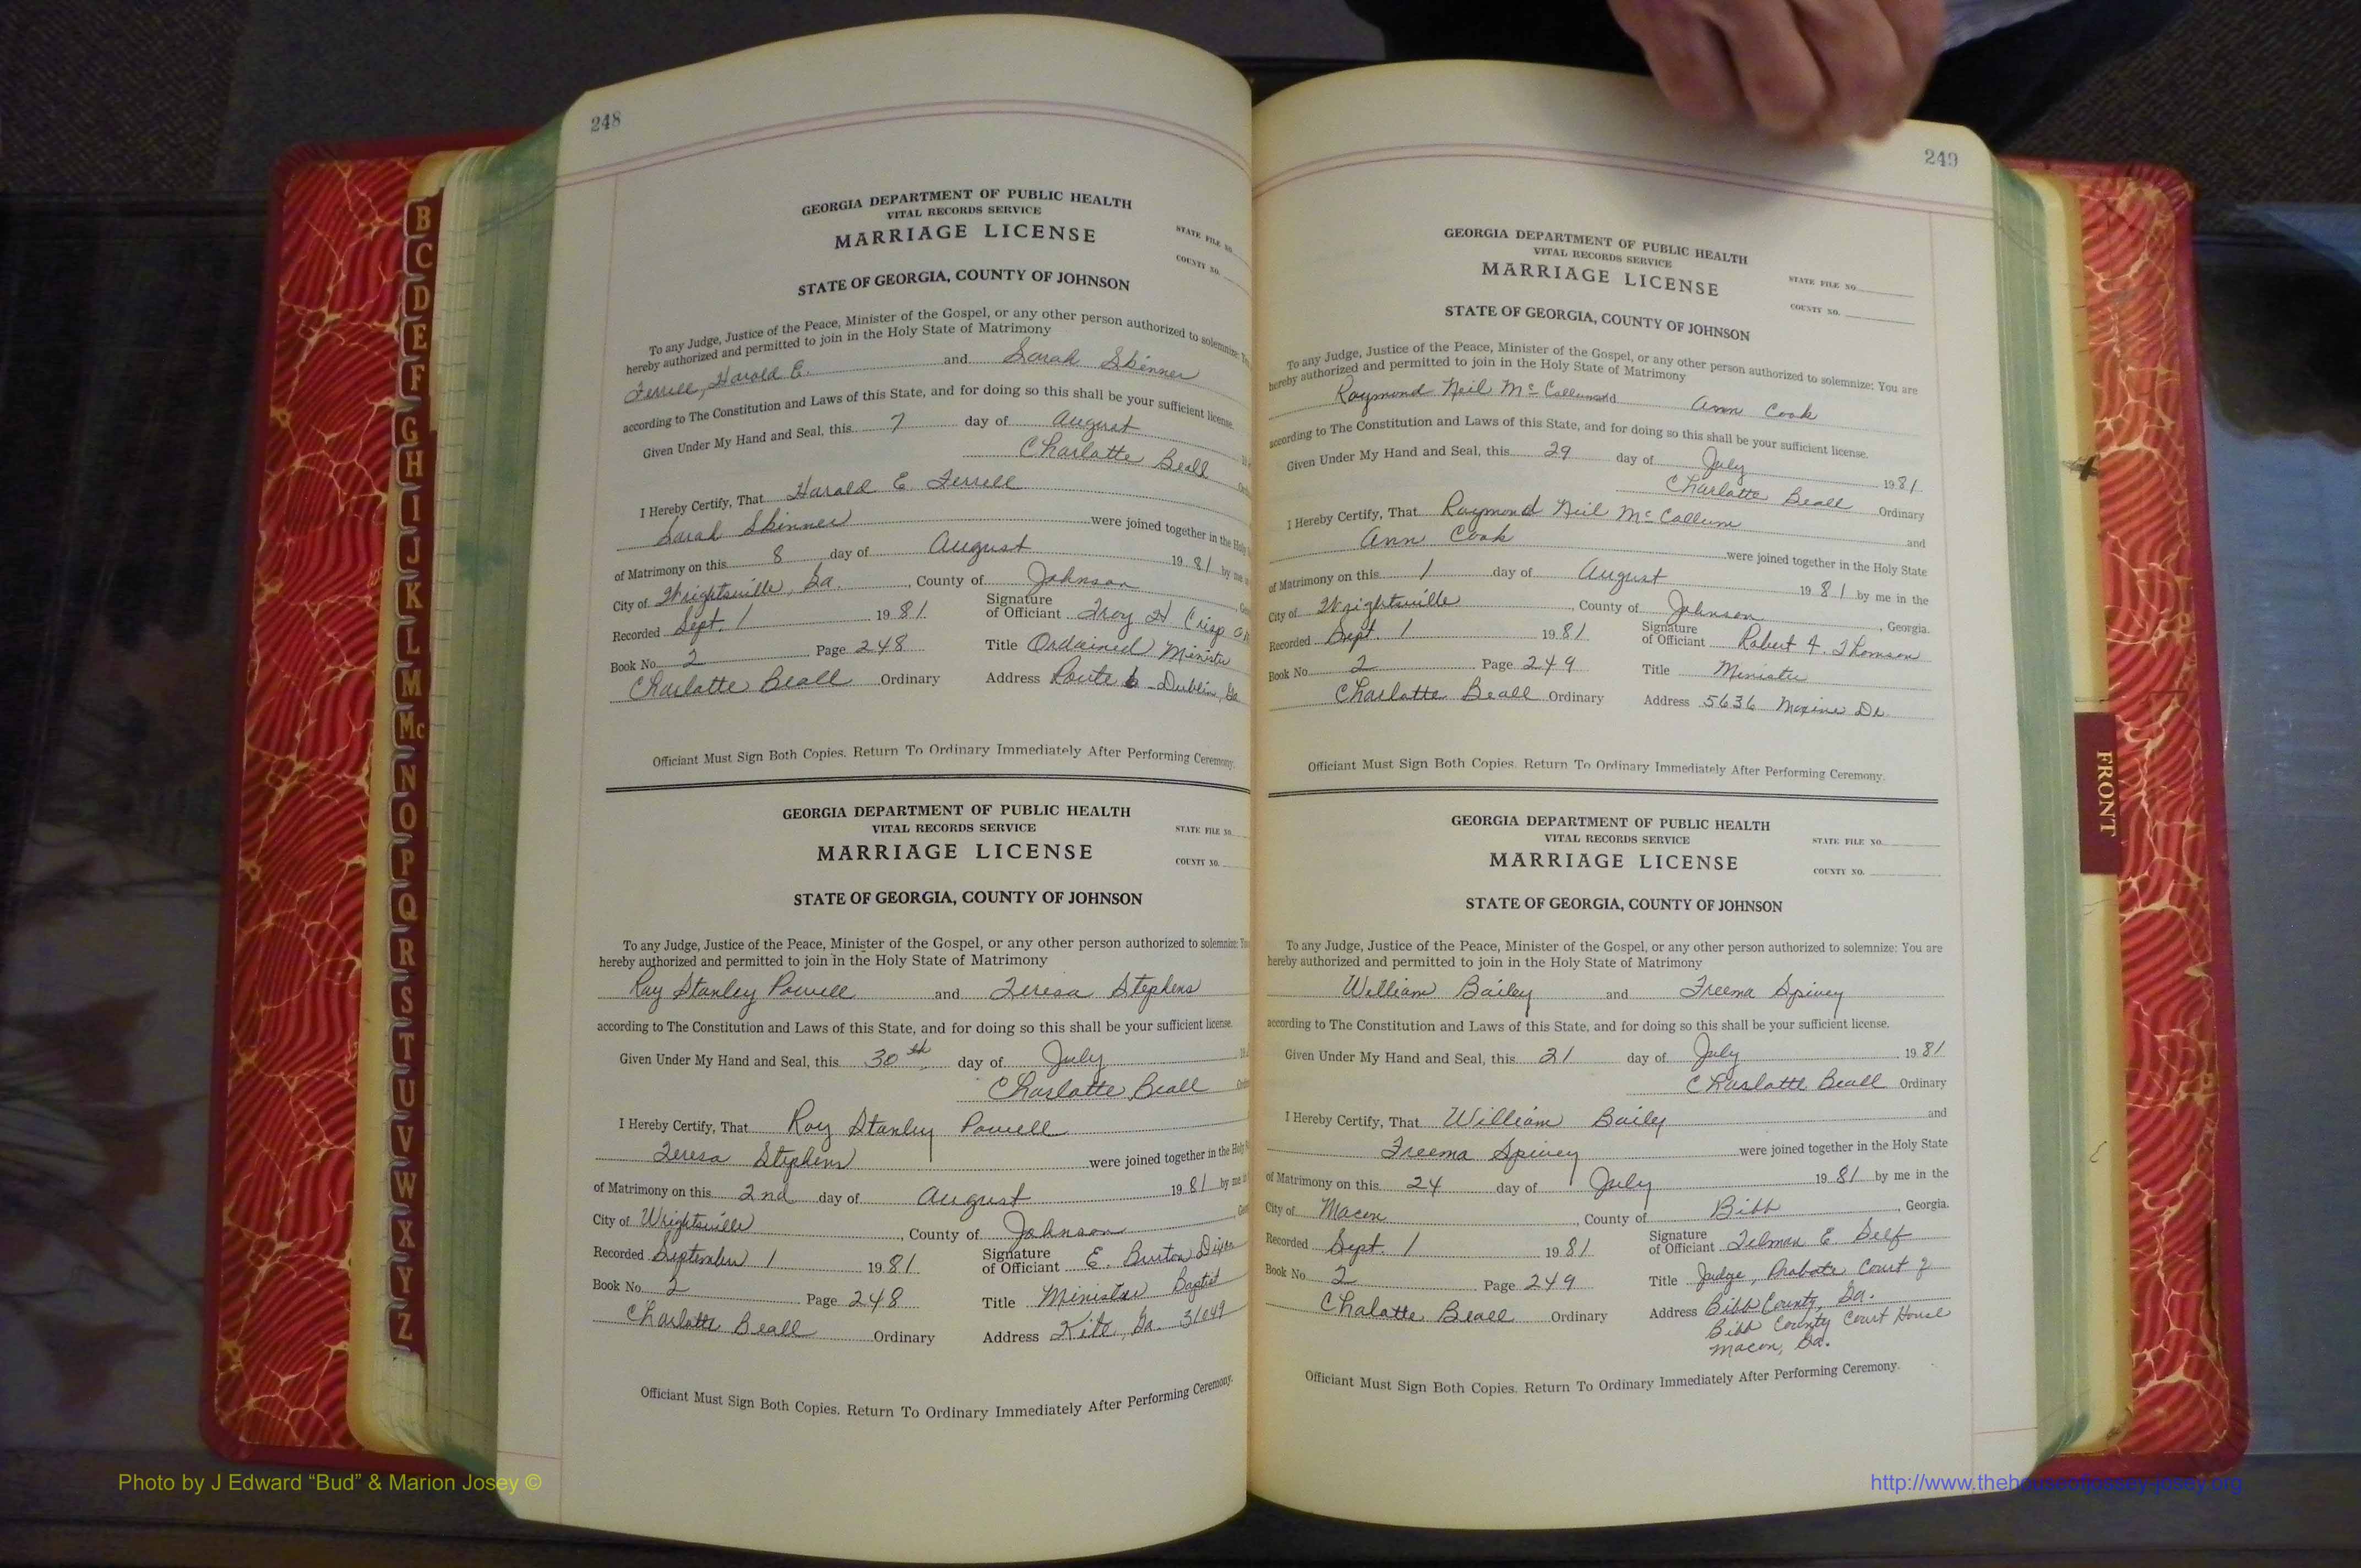 248
GEORGIA DEPARTMENT OF PUBLIC HEALTH
VITAL RECORDS SERVICE
MARRIAGE LICENSE
STATE FILE NO.
COUNTY NO.
STATE OF GEORGIA, COUNTY OF JOHNSON
To any Judge, Justice of the Peace, Minister of the Gospel, or any other person authorized to solemnize:
hereby authorized and permitted to join in the Holy State of Matrimony
Ferrell, Harold E. and Sarah Skinner
according to The Constitution and Laws of this State, and for doing so this shall be your sufficient license.
Given Under My Hand and Seal, this 7 day of August
Charlotte Beall
I Hereby Certify, That Harold E. Ferrell
Sarah Skinner were joined together in the Holy
of Matrimony on this 8 day of August 1981 by me
City of Wrightsville, Ga., County of Johnson
Recorded Sept. 1 1981 Signature of Officiant Troy H Crisp
Book No. 2 Page 248 Title Ordained Minister
Charlotte Beall Ordinary Address Route 6 Dublin, Ga
Officiant Must Sign Both Copies. Return To Ordinary Immediately After Performing Ceremony.
GEORGIA DEPARTMENT OF PUBLIC HEALTH
VITAL RECORDS SERVICE
MARRIAGE LICENSE
STATE FILE NO.
COUNTY NO.
STATE OF GEORGIA, COUNTY OF JOHNSON
To any Judge, Justice of the Peace, Minister of the Gospel, or any other person authorized to solemnize:
hereby authorized and permitted to join in the Holy State of Matrimony
Roy Stanley Powell and Teresa Stephens
according to The Constitution and Laws of this State, and for doing so this shall be your sufficient license.
Given Under My Hand and Seal, this 30th day of July
Charlotte Beall
I Hereby Certify, That Roy Stanley Powell
Teresa Stephens were joined together in the Holy
of Matrimony on this 2nd day of August 1981 by me
City of Wrightsville, County of Johnson
Recorded September 1 1981 Signature of Officiant E. Burton Dixon
Book No. 2 Page 248 Title Minister Baptist
Charlotte Beall Ordinary Address Kite, Ga. 31049
Officiant Must Sign Both Copies. Return To Ordinary Immediately After Performing Ceremony.
249
GEORGIA DEPARTMENT OF PUBLIC HEALTH
VITAL RECORDS SERVICE
MARRIAGE LICENSE
STATE FILE NO.
COUNTY NO.
STATE OF GEORGIA, COUNTY OF JOHNSON
To any Judge, Justice of the Peace, Minister of the Gospel, or any other person authorized to solemnize: You are
hereby authorized and permitted to join in the Holy State of Matrimony
Raymond Neil McCallum and Ann Cook
according to The Constitution and Laws of this State, and for doing so this shall be your sufficient license.
Given Under My Hand and Seal, this 29 day of July 1981
Charlotte Beall Ordinary
I Hereby Certify, That Raymond Neil McCallum and
Ann Cook were joined together in the Holy State
of Matrimony on this 1 day of August 1981 by me in the
City of Wrightsville, County of Johnson, Georgia.
Recorded Sept 1 1981 Signature of Officiant Robert A. Thomson
Book No. 2 Page 249 Title Minister
Charlotte Beall Ordinary Address 5636 Maxine Dr
Officiant Must Sign Both Copies. Return To Ordinary Immediately After Performing Ceremony.
GEORGIA DEPARTMENT OF PUBLIC HEALTH
VITAL RECORDS SERVICE
MARRIAGE LICENSE
STATE FILE NO.
COUNTY NO.
STATE OF GEORGIA, COUNTY OF JOHNSON
To any Judge, Justice of the Peace, Minister of the Gospel, or any other person authorized to solemnize: You are
hereby authorized and permitted to join in the Holy State of Matrimony
William Bailey and Freema Spivey
according to The Constitution and Laws of this State, and for doing so this shall be your sufficient license.
Given Under My Hand and Seal, this 21 day of July 1981
Charlotte Beall Ordinary
I Hereby Certify, That William Baily and
Freema Spivey were joined together in the Holy State
of Matrimony on this 24 day of July 1981 by me in the
City of Macon, County of Bibb, Georgia.
Recorded Sept. 1 1981 Signature of Officiant Telman E. Self
Book No. 2 Page 249 Title Judge, Probate Court of
Chalotte Beall Ordinary Address Bibb County, Ga.
Bibb County Court House
Macon, Ga.
Officiant Must Sign Both Copies. Return To Ordinary Immediately After Performing Ceremony.
B
C
D
E
F
G
H
I
J
K
L
M
Mc
N
O
P
Q
R
S
T
U
V
W
X
Y
Z
FRONT
Photo by J Edward “Bud” & Marion Josey ©
http://www.thehouseofjossey-josey.org